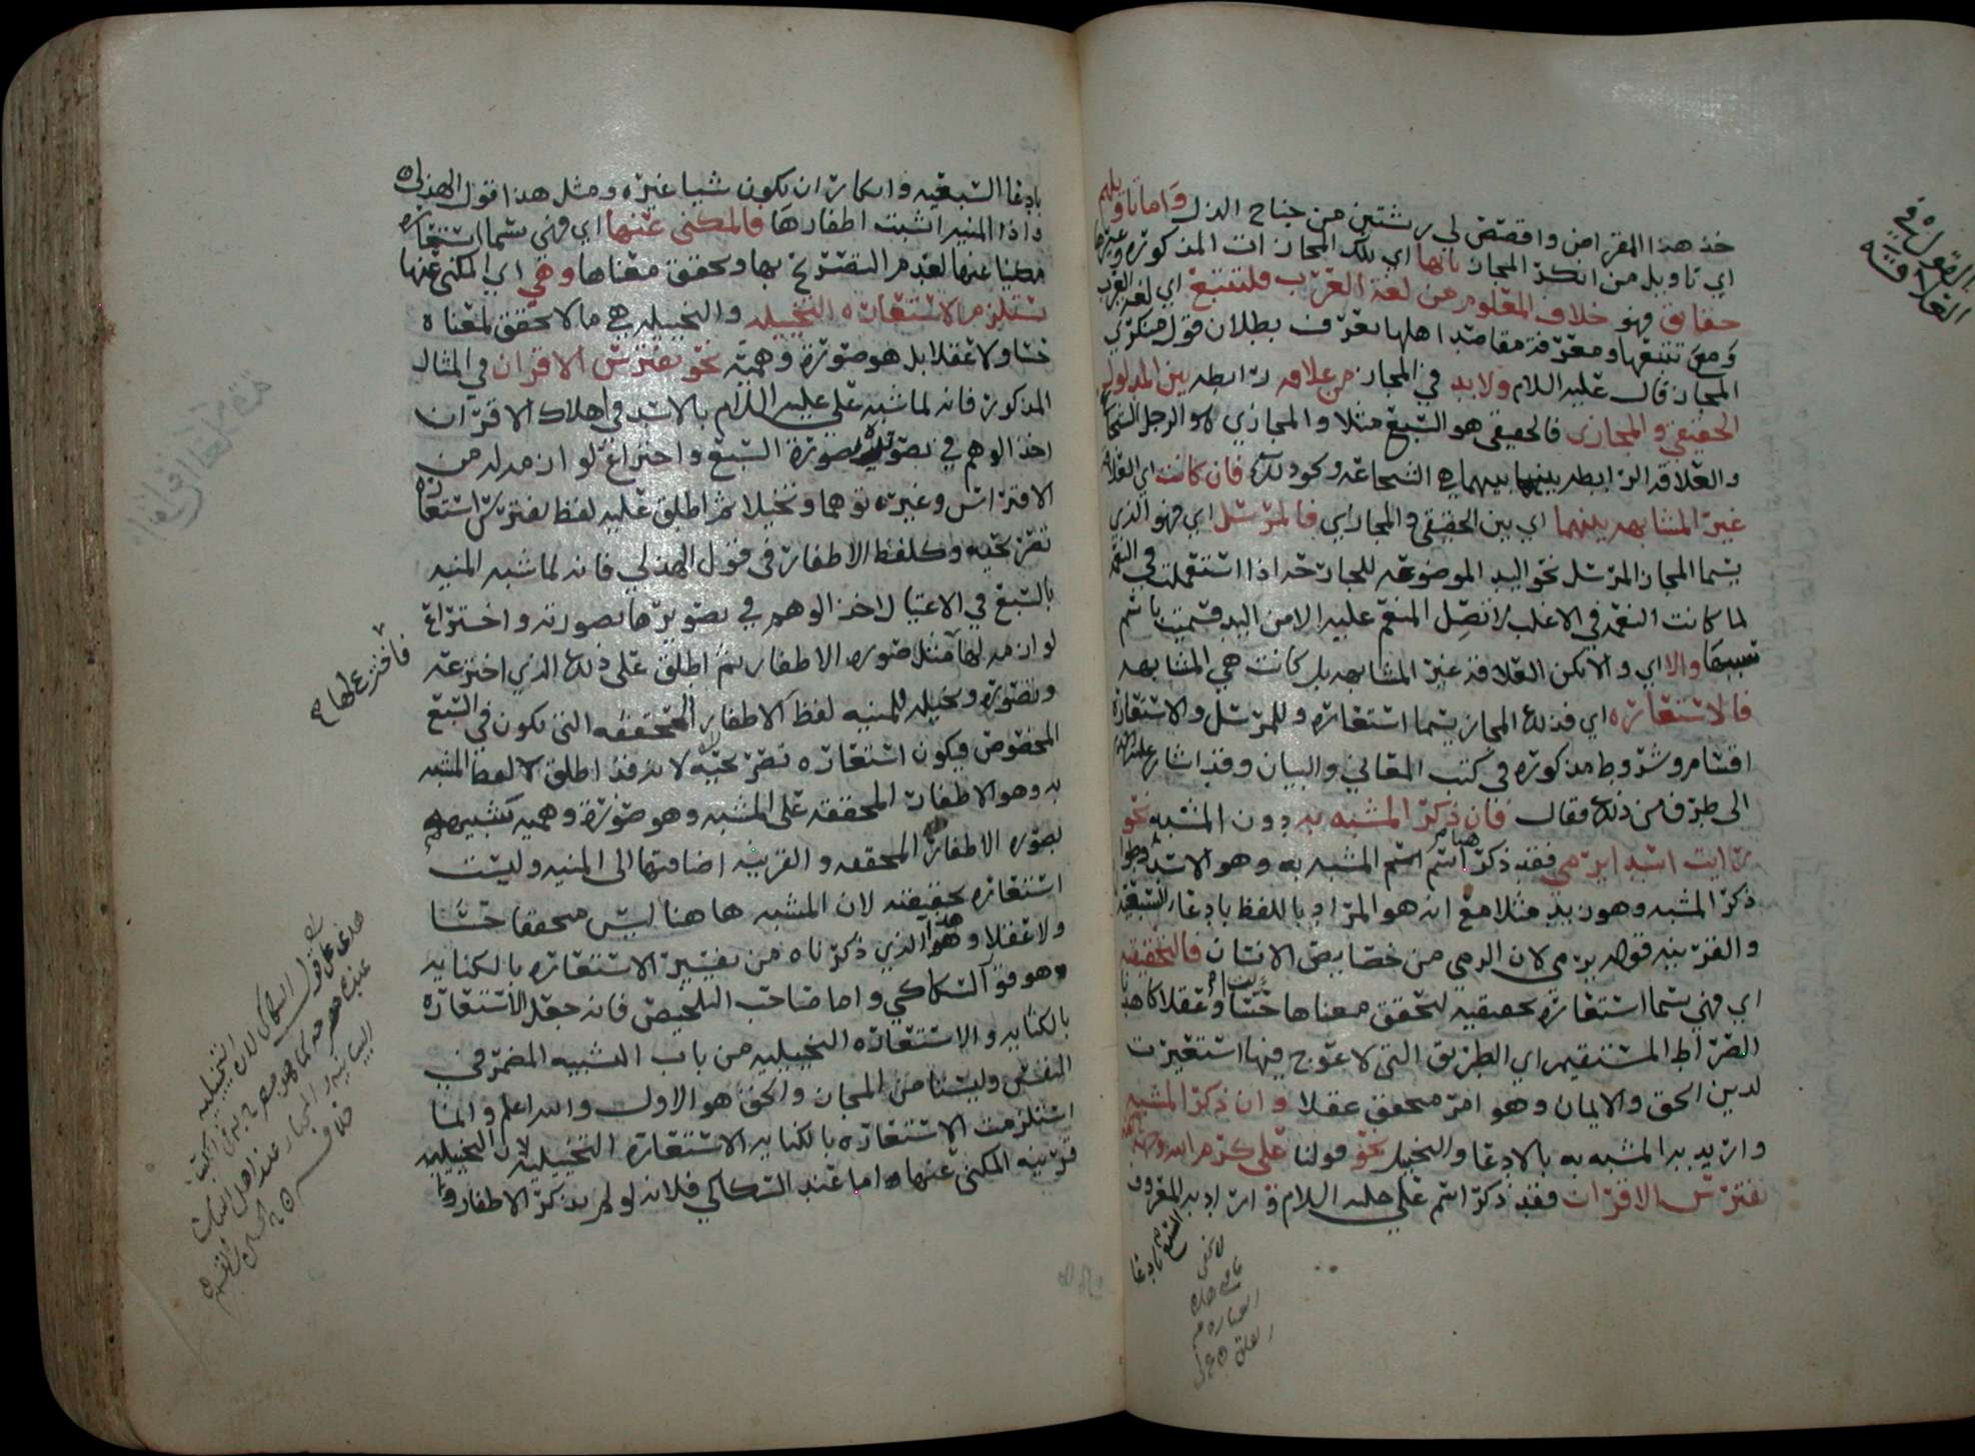 خذ هذا المقراض واقصص لي ريشتين من جناح الذل واما تاويلهم
اي تاويل من انكر المجاز بانها اي تلك المجازات المذكورة وغيرها
حقايق فهو خلاف المعلوم من لغة العرب فلتتبع اي لغة العرب
ومع تتبعها ومعرفة مقاصد اهلها يعرف بطلان قول منكري
المجاز قال عليه السلام ولا بد في المجاز من علاقه رابطه بين المدلول
الحقيقي والمجازي فالحقيقي هو السبع مثلا والمجازي هو الرجل الشجاع
والعلاقه الرابطه بينهما هي الشجاعه ونحو ذلك فان كانت اي العلاقة
غير المشابهه بينهما اي بين الحقيقي والمجازي فالمرسل اي فهو الذي
يسما المجاز المرسل نحو اليد الموضوعه للجارحة اذا استعملت في النعمه
لما كانت النعمه في الاغلب لا تصل المنعم عليه الا من اليد فسميت باسم
سببها والا اي والا تكن العلاقه غير المشابهه بل كانت هي المشابهه
فالاستعاره اي فذلك المجاز يسما استعاره وللمرسل والاستعارة
اقسام وشروط مذكوره في كتب المعاني والبيان وقد اشار عليه السلام
الى طرف من ذلك فقال فان ذكر المشبه به دون المشبه نحو
رايت اسدا يرمي فقد ذكر اسم المشبه به وهو الاسد وطوا
ذكر المشبه وهو زيد مثلا مع انه هو المراد باللفظ بادعاء السبعيه
والقرينه قوله يرمي لان الرمي من خصايص الانسان فالتحقيقيه
اي فهي تسما استعارة تحقيقيه لتحقق معناها حسا او عقلا كاهدنا
الصراط المستقيم اي الطريق التي لا عوج فيها استعيرت
لدين الحق والايمان وهو امر متحقق عقلا وان ذكر المشبه
واريد به المشبه به بالادعا والتخييل نحو قولنا علي كرم الله وجهه
يفترس الاقران فقد ذكر اسم علي عليه السلام واراد به المعروف
القول في
العلاقة
بادعا السبعيه وانكار ان يكون شيا غيره ومثل هذا قول الهذلي
واذا المنيه انشبت اطفارها فالمكنى عنها اي فهي تسما استعاره
مكنيا عنها لعدم التصريح بها وتحقق معناها وهي اي المكنى عنها
تستلزم الاستعاره التخييليه والتخييليه هي ما لا تحقق لمعناه
حسا ولا عقلا بل هو صورة وهميه نحو يفترس الاقران في المثال
المذكور فانه لما شبه علي عليه السلام بالاسد في اهلاك الاقران
اخذ الوهم في تصويره بصورة السبع واختراع لوازمه له من
الافتراس وغيره توهما وتخيلا ثم اطلق عليه لفظ يفترس استعاره
تصريحيه وكلفظ الاطفار في قول الهذلي فانه لما شبه المنيه
بالسبع في الاغتيال اخذ الوهم في تصويرها بصورته واختراع
لوازمه لها مثل صورة الاطفار ثم اطلق على ذلك الذي اخترعه
وتصوره وتخيله للمنيه لفظ الاطفار المتحققه التي تكون في السبع
المخصوص فيكون استعاره تصريحيه لانه قد اطلق لفظ المشبه
به وهو الاطفار المحققه على المشبه وهو صورة وهميه تشبيهه
بصورة الاطفار المحققه والقرينه اضافتها الى المنيه وليست
استعاره تحقيقيه لان المشبه هاهنا ليس متحققا حسا
ولا عقلا وهذا الذي ذكرناه من تفسير الاستعاره بالكنايه
وهو قول السكاكي واما صاحب التلخيص فانه جعل الاستعاره
بالكنايه والاستعاره التخييليه من باب التشبيه المضمر في
النفس وليستا من المجاز والحق هو الاول والله اعلم وانما
استلزمت الاستعاره بالكنايه الاستعارة التخييليه لان التخييليه
قرينه المكنى عنها واما عند السكاكي فلانه لو لم يذكر الاطفار